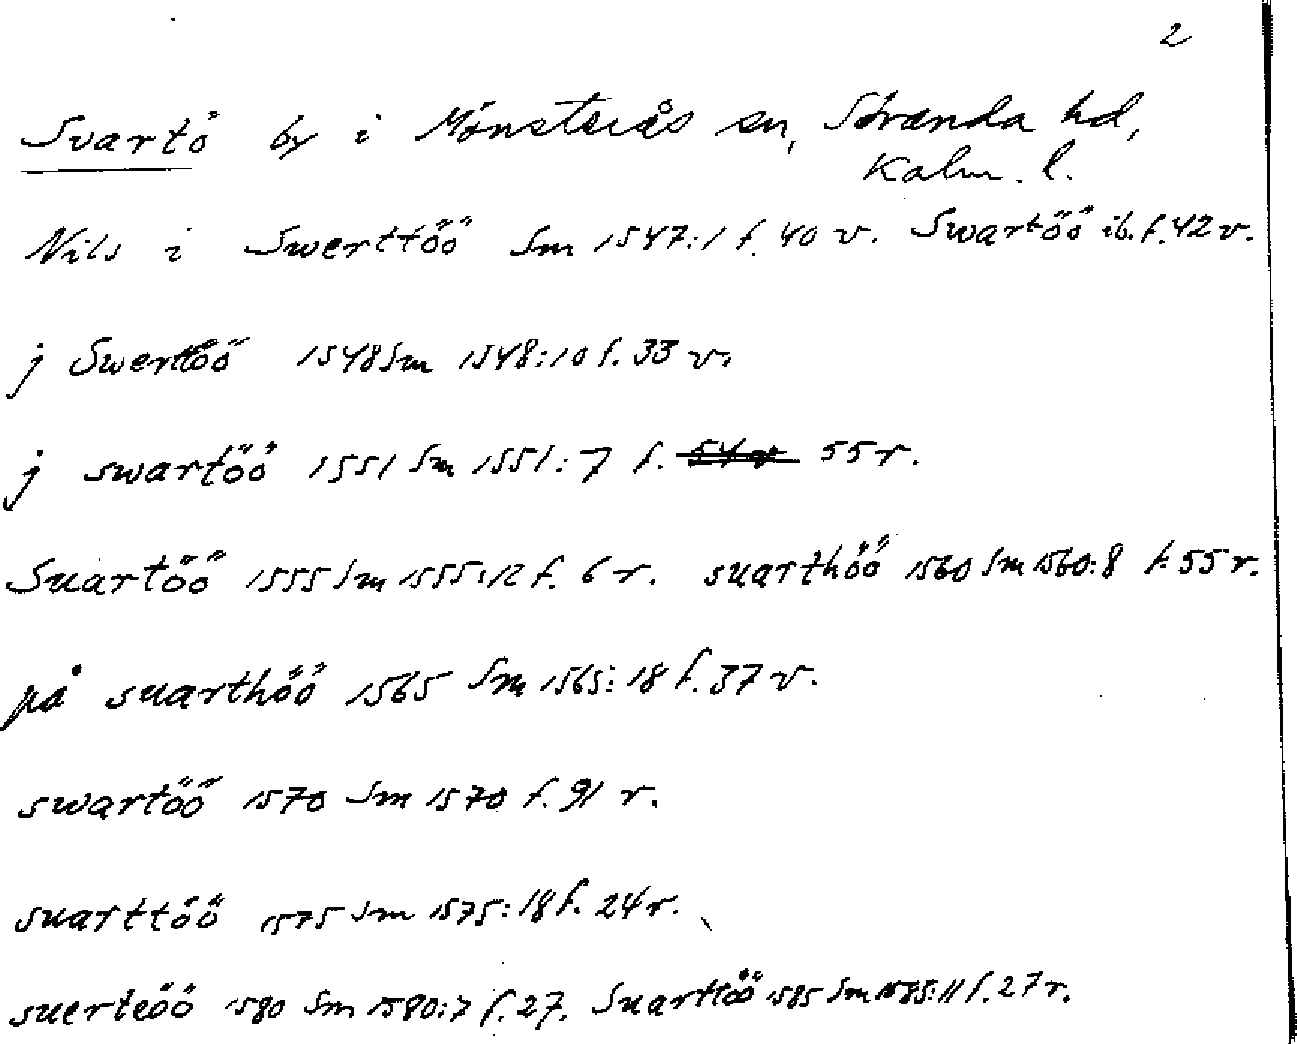 2
Svartö by i Mönsterås sn, Stranda hd,
Kalm. l.
Nils i Swerttöö Sm 1547:1 f. 40 v. Swartöö ib. f. 42 v.
j Swerttöö 1548 Sm 1548:10 f. 33 v.
j swartöö 1551 Sm 1551:7 f. 54 v 55 r.
Suartöö 1555 Sm 1555:12 f. 6 r. suarthöö 1560 Sm 1560:8 f. 55 r.
på suarthöö 1565 Sm 1565:18 f. 37 v.
swartöö 1570 Sm 1570 f. 91 r.
suarttöö 1575 Sm 1575:18 f. 24 r.
suerteöö 1580 Sm 1580:7 f. 27. Suarttöö 1585 Sm 1585:11 f. 27 r.